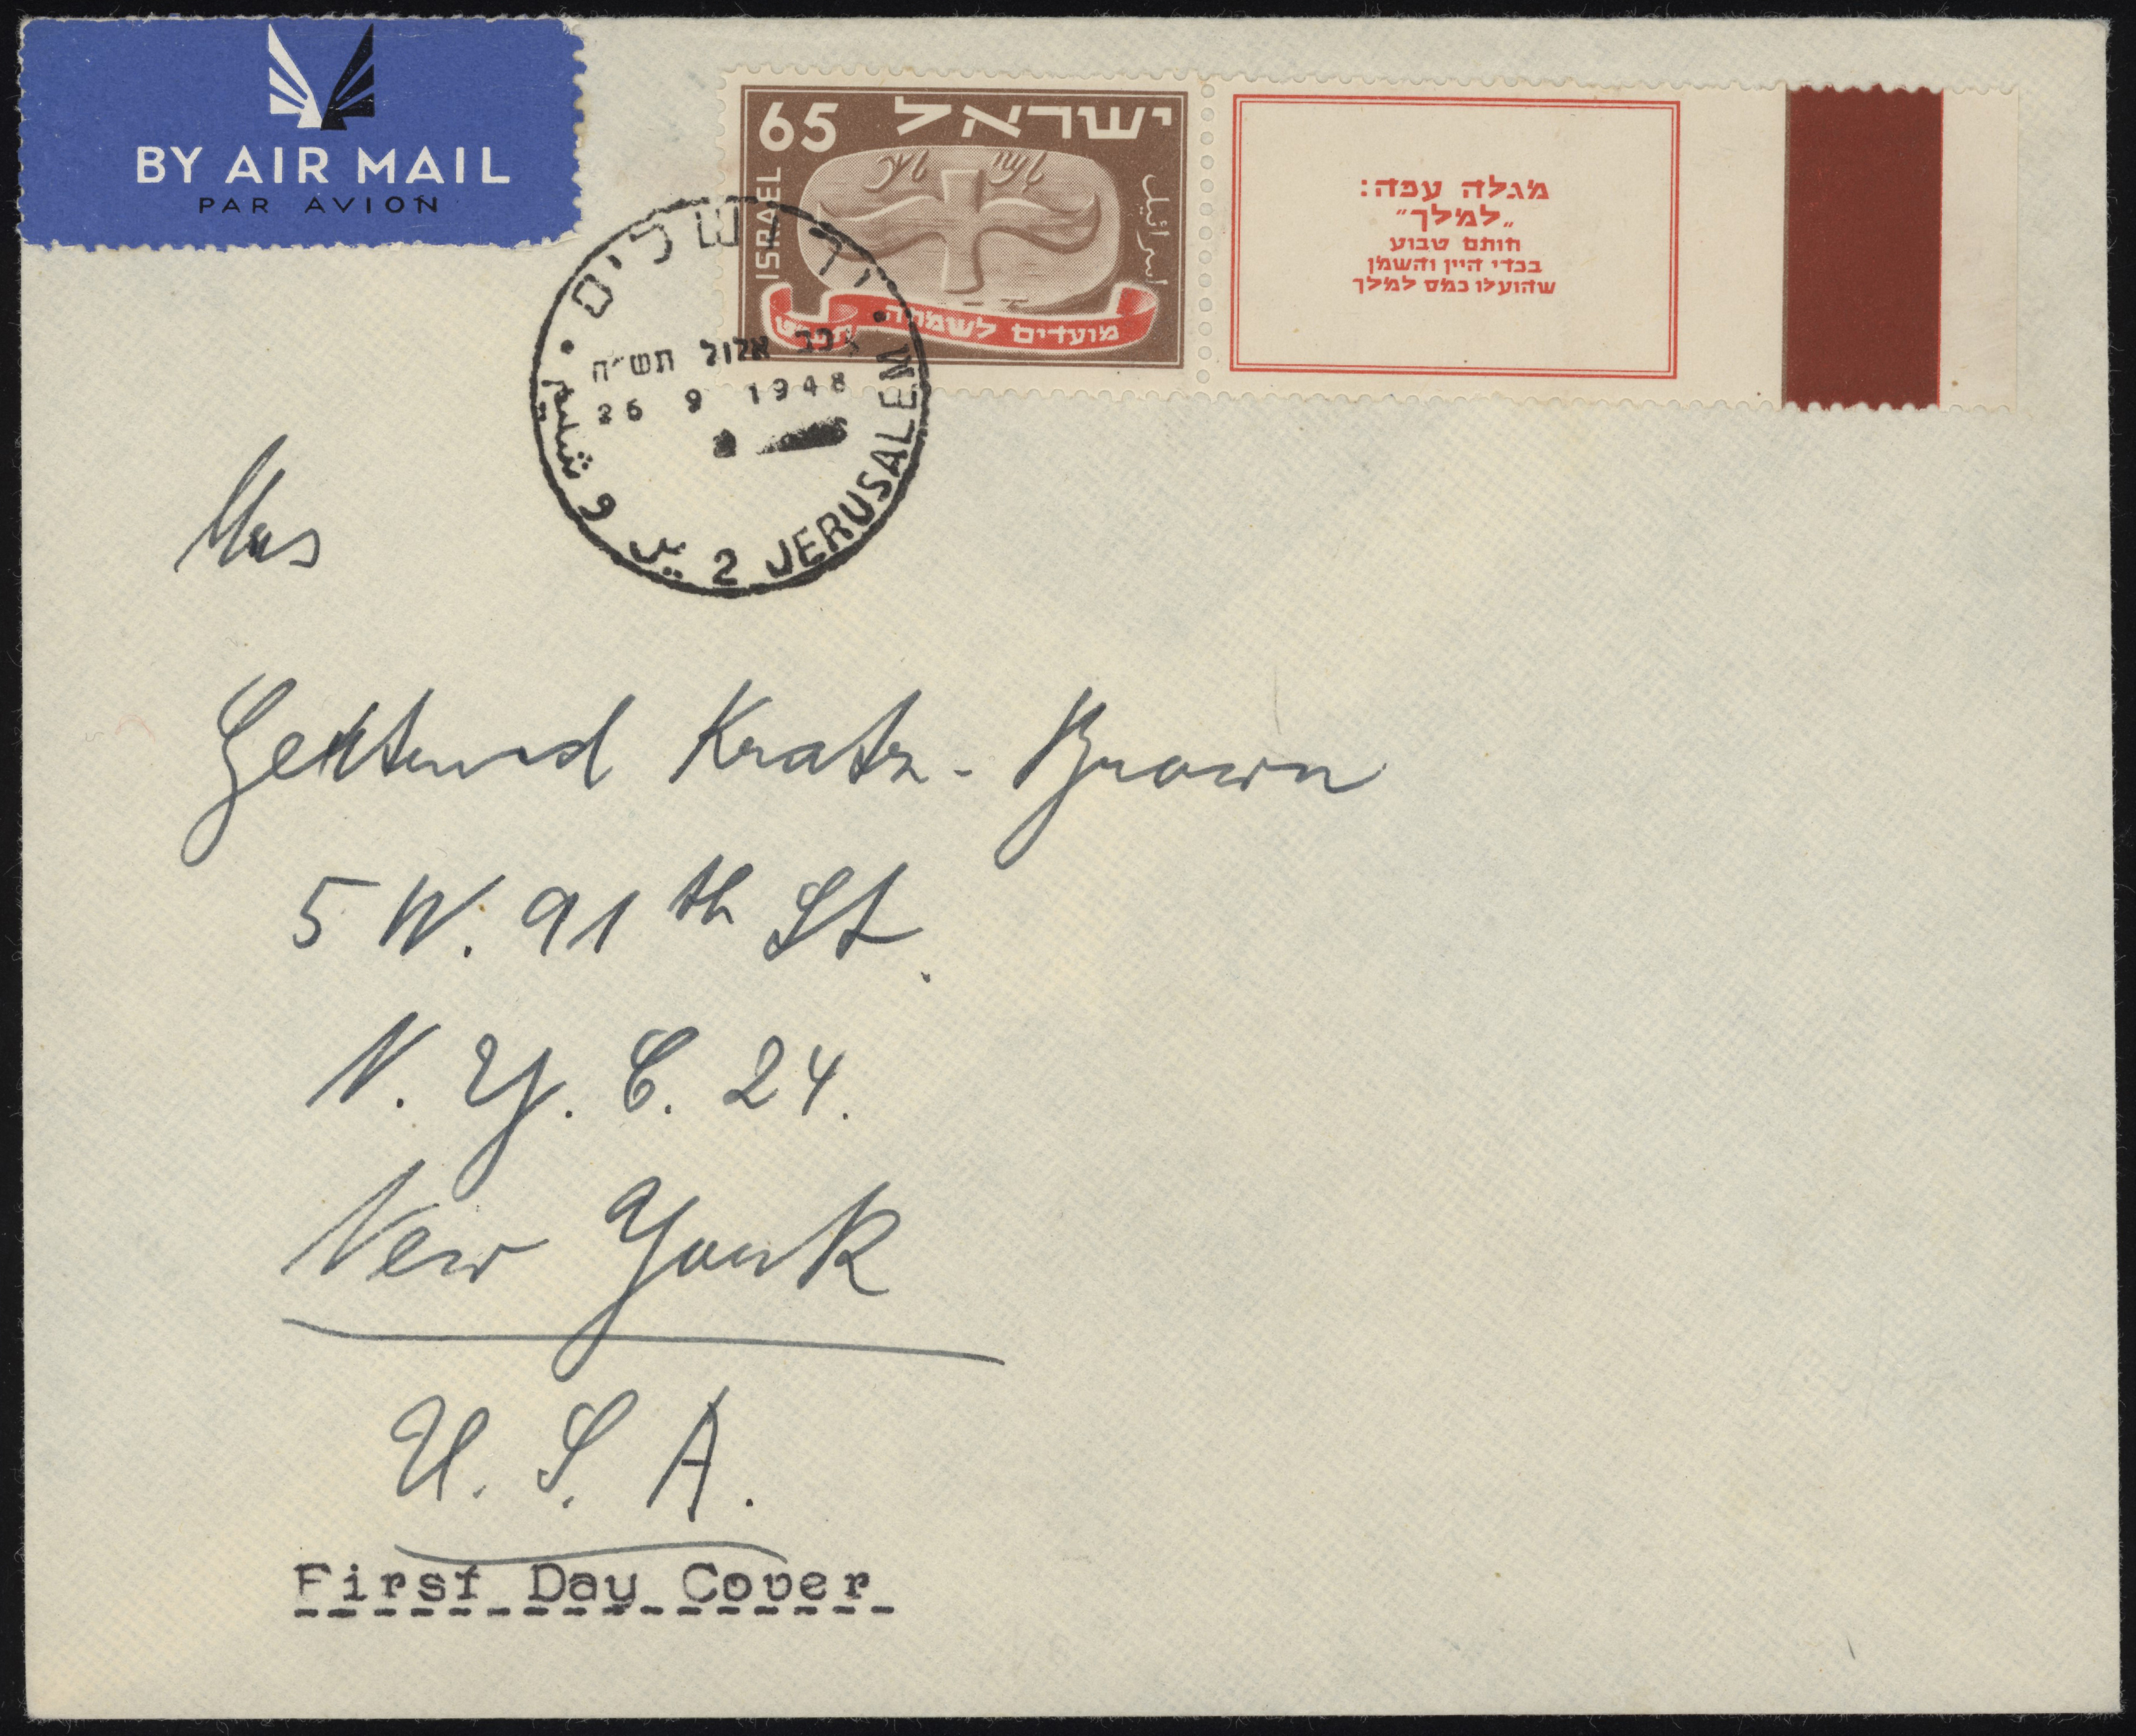 BY AIR MAIL
PAR AVION
65 ישראל
ISRAEL
اسرائيل
מועדים לשמחה תש״ט
מגלה עפה:
„למלך”
חותם טבוע
בכדי היין והשמן
שהועלו כמס למלך
ירושלים
כב אלול תש״ח
26 9 1948
2 JERUSALEM
يروشليم
Mrs
Gertrud Kratz-Brown
5 W. 91th St.
N. Y. C. 24.
New York
U. S. A.
First Day Cover